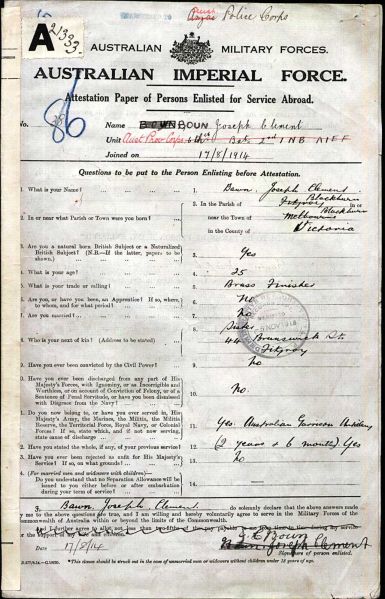 Police Corps
A
21333
AUSTRALIAN MILITARY FORCES.
AUSTRALIAN IMPERIAL FORCE.
Attestation Paper of Persons Enlisted for Service Abroad.
86
No.
Name BOUN Joseph Clement
Unit Aust Prov Corps 6th Bat. 2nd INB AIEF
Joined on 17/8/1914
Questions to be put to the Person Enlisting before Attestation.
1. What is your Name? 1. Bawn, Joseph Clement
2. In or near what Parish or Town were you born? 2. In the Parish of Fitzroy Blackburn in or
near the Town of Melbourne Blackburn
in the County of Victoria
3. Are you a natural born British Subject or a Naturalized
British Subject? (N.B.—If the latter, papers to be
shown.) 3. Yes
4. What is your age? 4. 25
5. What is your trade or calling? 5. Brass Finisher
6. Are you, or have you been, an Apprentice? If so, where,
to whom, and for what period? 6. No
7. Are you married? 7. No
8. Who is your next of kin? (Address to be stated) 8. Sister
44 Brunswick St.
Fitzroy
9. Have you ever been convicted by the Civil Power? 9. No
10. Have you ever been discharged from any part of His
Majesty's Forces, with Ignominy, or as Incorrigible and
Worthless, or on account of Conviction of Felony, or of a
Sentence of Penal Servitude, or have you been dismissed
with Disgrace from the Navy? 10. No.
11. Do you now belong to, or have you ever served in, His
Majesty's Army, the Marines, the Militia, the Militia
Reserve, the Territorial Force, Royal Navy, or Colonial
Forces? If so, state which, and if not now serving,
state cause of discharge 11. Yes. Australian Garrison Artillery
12. Have you stated the whole, if any, of your previous service? 12. (2 years & 6 months) Yes
13. Have you ever been rejected as unfit for His Majesty's
Service? If so, on what grounds? 13. No
14. (For married men and widowers with children)—
Do you understand that no Separation Allowance will be
issued to you either before or after embarkation
during your term of service? 14.
I, Bawn, Joseph Clement do solemnly declare that the above answers made
by me to the above questions are true, and I am willing and hereby voluntarily agree to serve in the Military Forces of the
Commonwealth of Australia within or beyond the limits of the Commonwealth.
Date 17/8/14
J. C. Bown
Joseph Clement
Signature of person enlisted.
*This clause should be struck out in the case of unmarried men or widowers without children under 18 years of age.